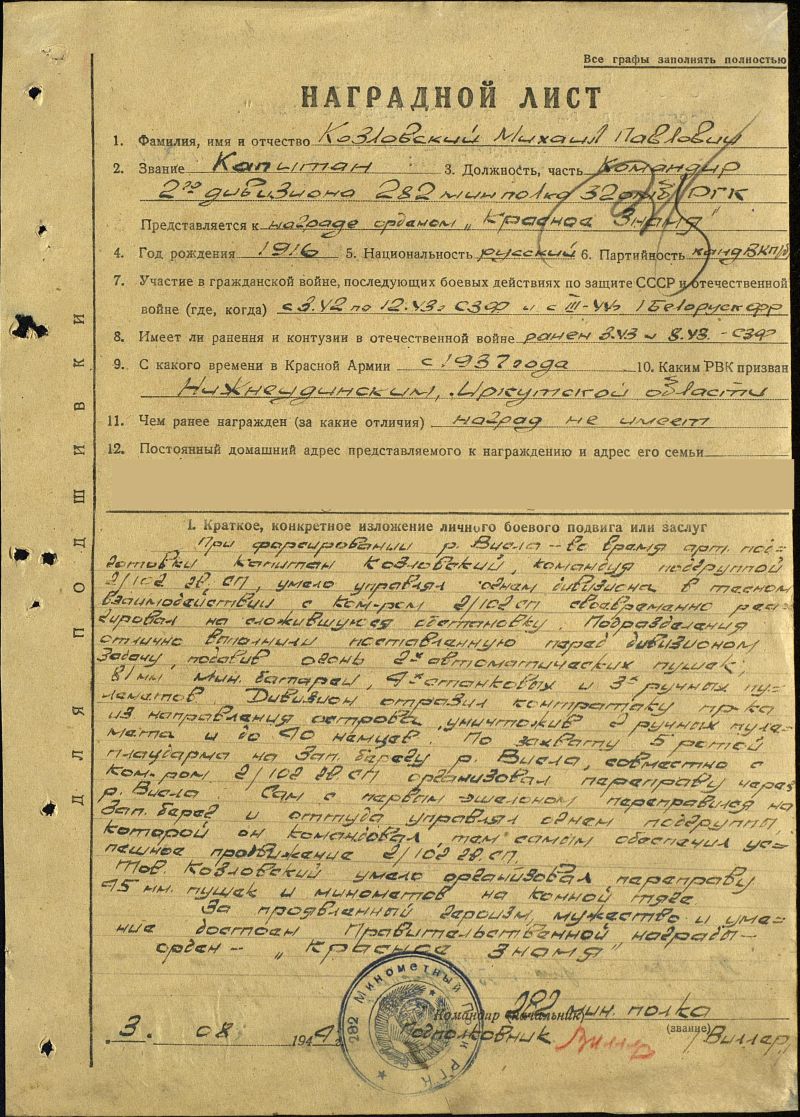 Все графы заполнять полностью
НАГРАДНОЙ ЛИСТ
1. Фамилия, имя и отчество Козловский Михаил Павлович
2. Звание Капитан 3. Должность, часть Командир
2го дивизиона 282 минполка 32 РГК
Представляется к награде орденом „Красное Знамя"
4. Год рождения 1916 5. Национальность русский 6. Партийность канд ВКП/б
7. Участие в гражданской войне, последующих боевых действиях по защите СССР и отечественной
войне (где, когда) с 3.42 по 12.43г СЗФ и с III-44г I Белорус фр
8. Имеет ли ранения и контузии в отечественной войне ранен 3.43 и 8.43. - СЗФ
9. С какого времени в Красной Армии с 1937 года 10. Каким РВК призван
Нижнеудинским, Иркутской области
11. Чем ранее награжден (за какие отличия) наград не имеет
12. Постоянный домашний адрес представляемого к награждению и адрес его семьи
ДЛЯ ПОДШИВКИ
I. Краткое, конкретное изложение личного боевого подвига или заслуг
При форсировании р. Висла – во время арт. под-
готовки капитан Козловский, командуя подгруппой
2/102 гв. СП, умело управлял огнем дивизиона в тесном
взаимодействии с ком-ром 2/102 СП своевременно реа-
гировал на сложившуюся обстановку. Подразделения
отлично выполнили поставленную перед дивизионом
задачу, подавив огонь 2х автоматических пушек,
81 мм мин. батареи, 4х станковых и 3х ручных пу-
леметов. Дивизион отразил контратаку пр-ка
из направления острова, уничтожив 2 ручных пуле-
мета и до 40 немцев. По захвату 5 ротой
плацдарма на Зап. берегу р. Висла, совместно с
Ком-ром 2/102 гв. СП организовал переправу через
р. Висла Сам с первым эшелоном переправился на
Зап. берег и оттуда управлял огнем подгруппы,
которой он командовал, тем самым обеспечил ус-
пешное продвижение 2/102 гв. СП.
Тов. Козловский умело организовал переправу
45 мм. пушек и минометов на конной тяге
За проявленный героизм, мужество и уме-
ние достоен Правительственной награды –
орден – „Красное Знамя"
Командир (начальник) 282 мин. полка
3. 08 1944 г. Подполковник Виллер (звание) /Виллер/
282 Минометный Полк РГК